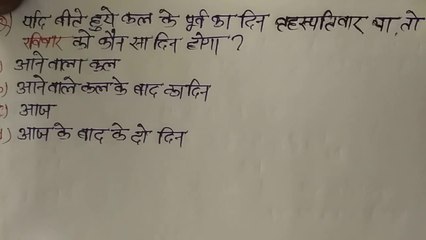 यदि बीते हुये कल के पूर्व का दिन वृहस्पतिवार था, तो
रविवार को कौन सा दिन होगा ?
आने वाला कल
आने वाले कल के बाद का दिन
आज
आज के बाद के दो दिन